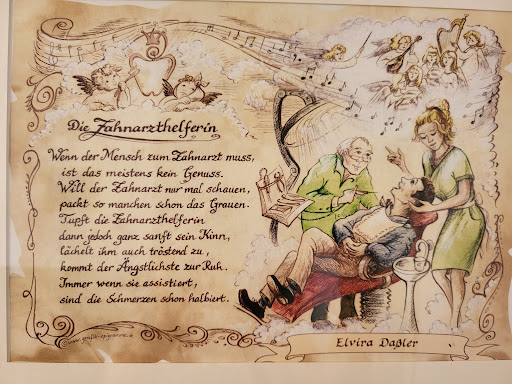 Die Zahnarzthelferin
Wenn der Mensch zum Zahnarzt muss,
ist das meistens kein Genuss.
Will der Zahnarzt nur mal schauen,
packt so manchen schon das Grauen.
Tupft die Zahnarzthelferin
dann jedoch ganz sanft sein Kinn,
lächelt ihm auch tröstend zu,
kommt der Ängstlichste zur Ruh.
Immer wenn sie assistiert,
sind die Schmerzen schon halbiert.
Elvira Daßler